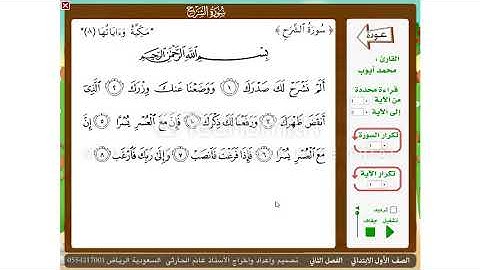 سورة الشرح
عودة
﴿ سُورَةُ الشَّرْحِ ﴾
"مَكِيَّةٌ وَءَايَاتُهَا (٨)"
بِسْمِ اللَّهِ الرَّحْمَٰنِ الرَّحِيمِ
أَلَمْ نَشْرَحْ لَكَ صَدْرَكَ ١ وَوَضَعْنَا عَنكَ وِزْرَكَ ٢ ٱلَّذِىٓ
أَنقَضَ ظَهْرَكَ ٣ وَرَفَعْنَا لَكَ ذِكْرَكَ ٤ فَإِنَّ مَعَ ٱلْعُسْرِ يُسْرًا ٥ إِنَّ
مَعَ ٱلْعُسْرِ يُسْرًا ٦ فَإِذَا فَرَغْتَ فَٱنصَبْ ٧ وَإِلَىٰ رَبِّكَ فَٱرْغَب ٨
القارئ :
محمد أيوب
قراءة محددة
من الآية
إلى الآية
تكرار السورة
تكرار الآية
ترديد
تشغيل
إيقاف
الصف الأول الابتدائي
الفصل الثاني
تصميم وإعداد وإخراج الأستاذ غانم الحارثي السعودية الرياض 0554217001